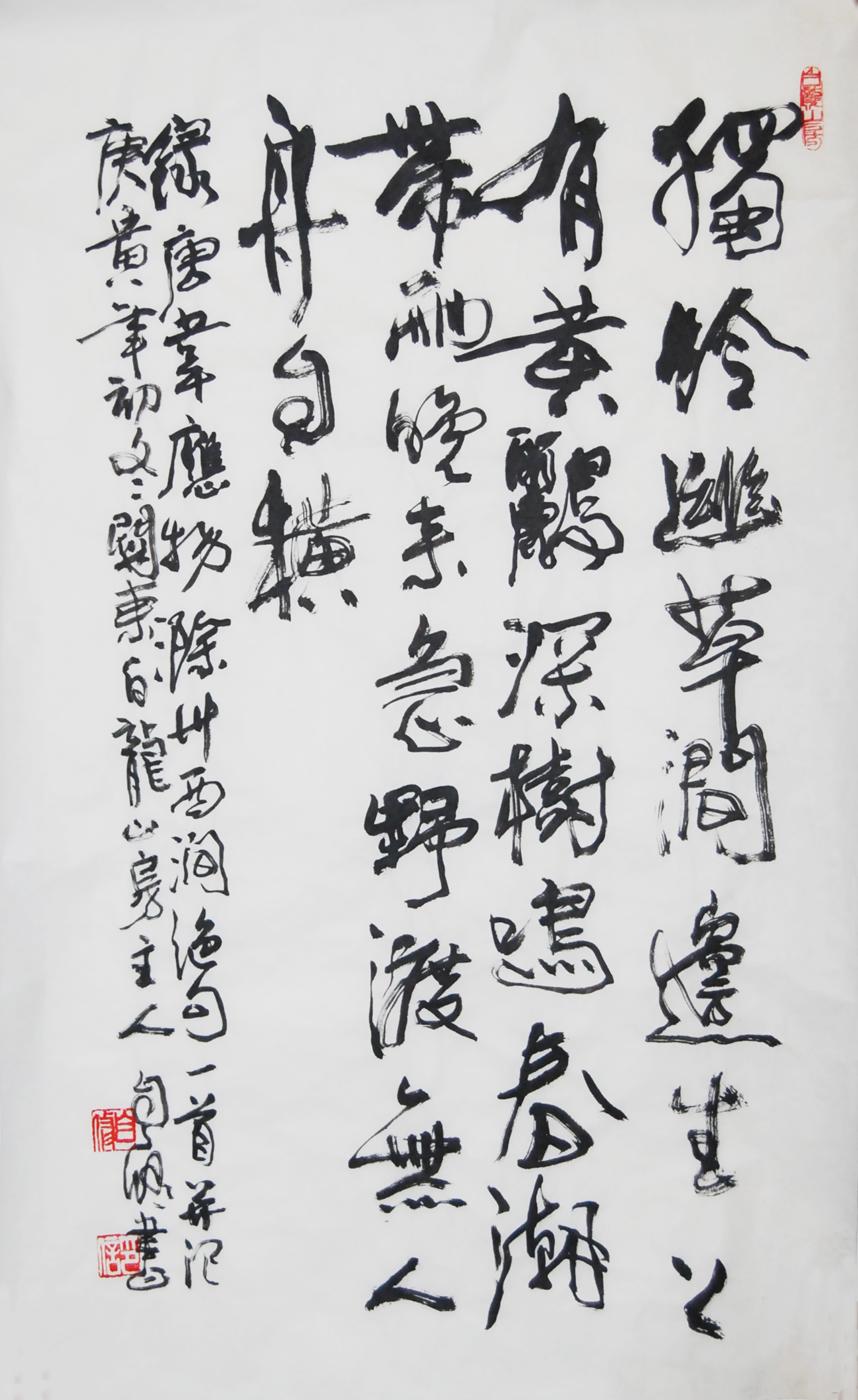 獨怜幽草澗邊生上
有黃鸝深樹鳴春潮
帶雨晚來急野渡無人
舟自橫
錄唐韋應物滁州西澗絕句一首并记
庚寅年初冬關東白龍山房主人自修書
自修